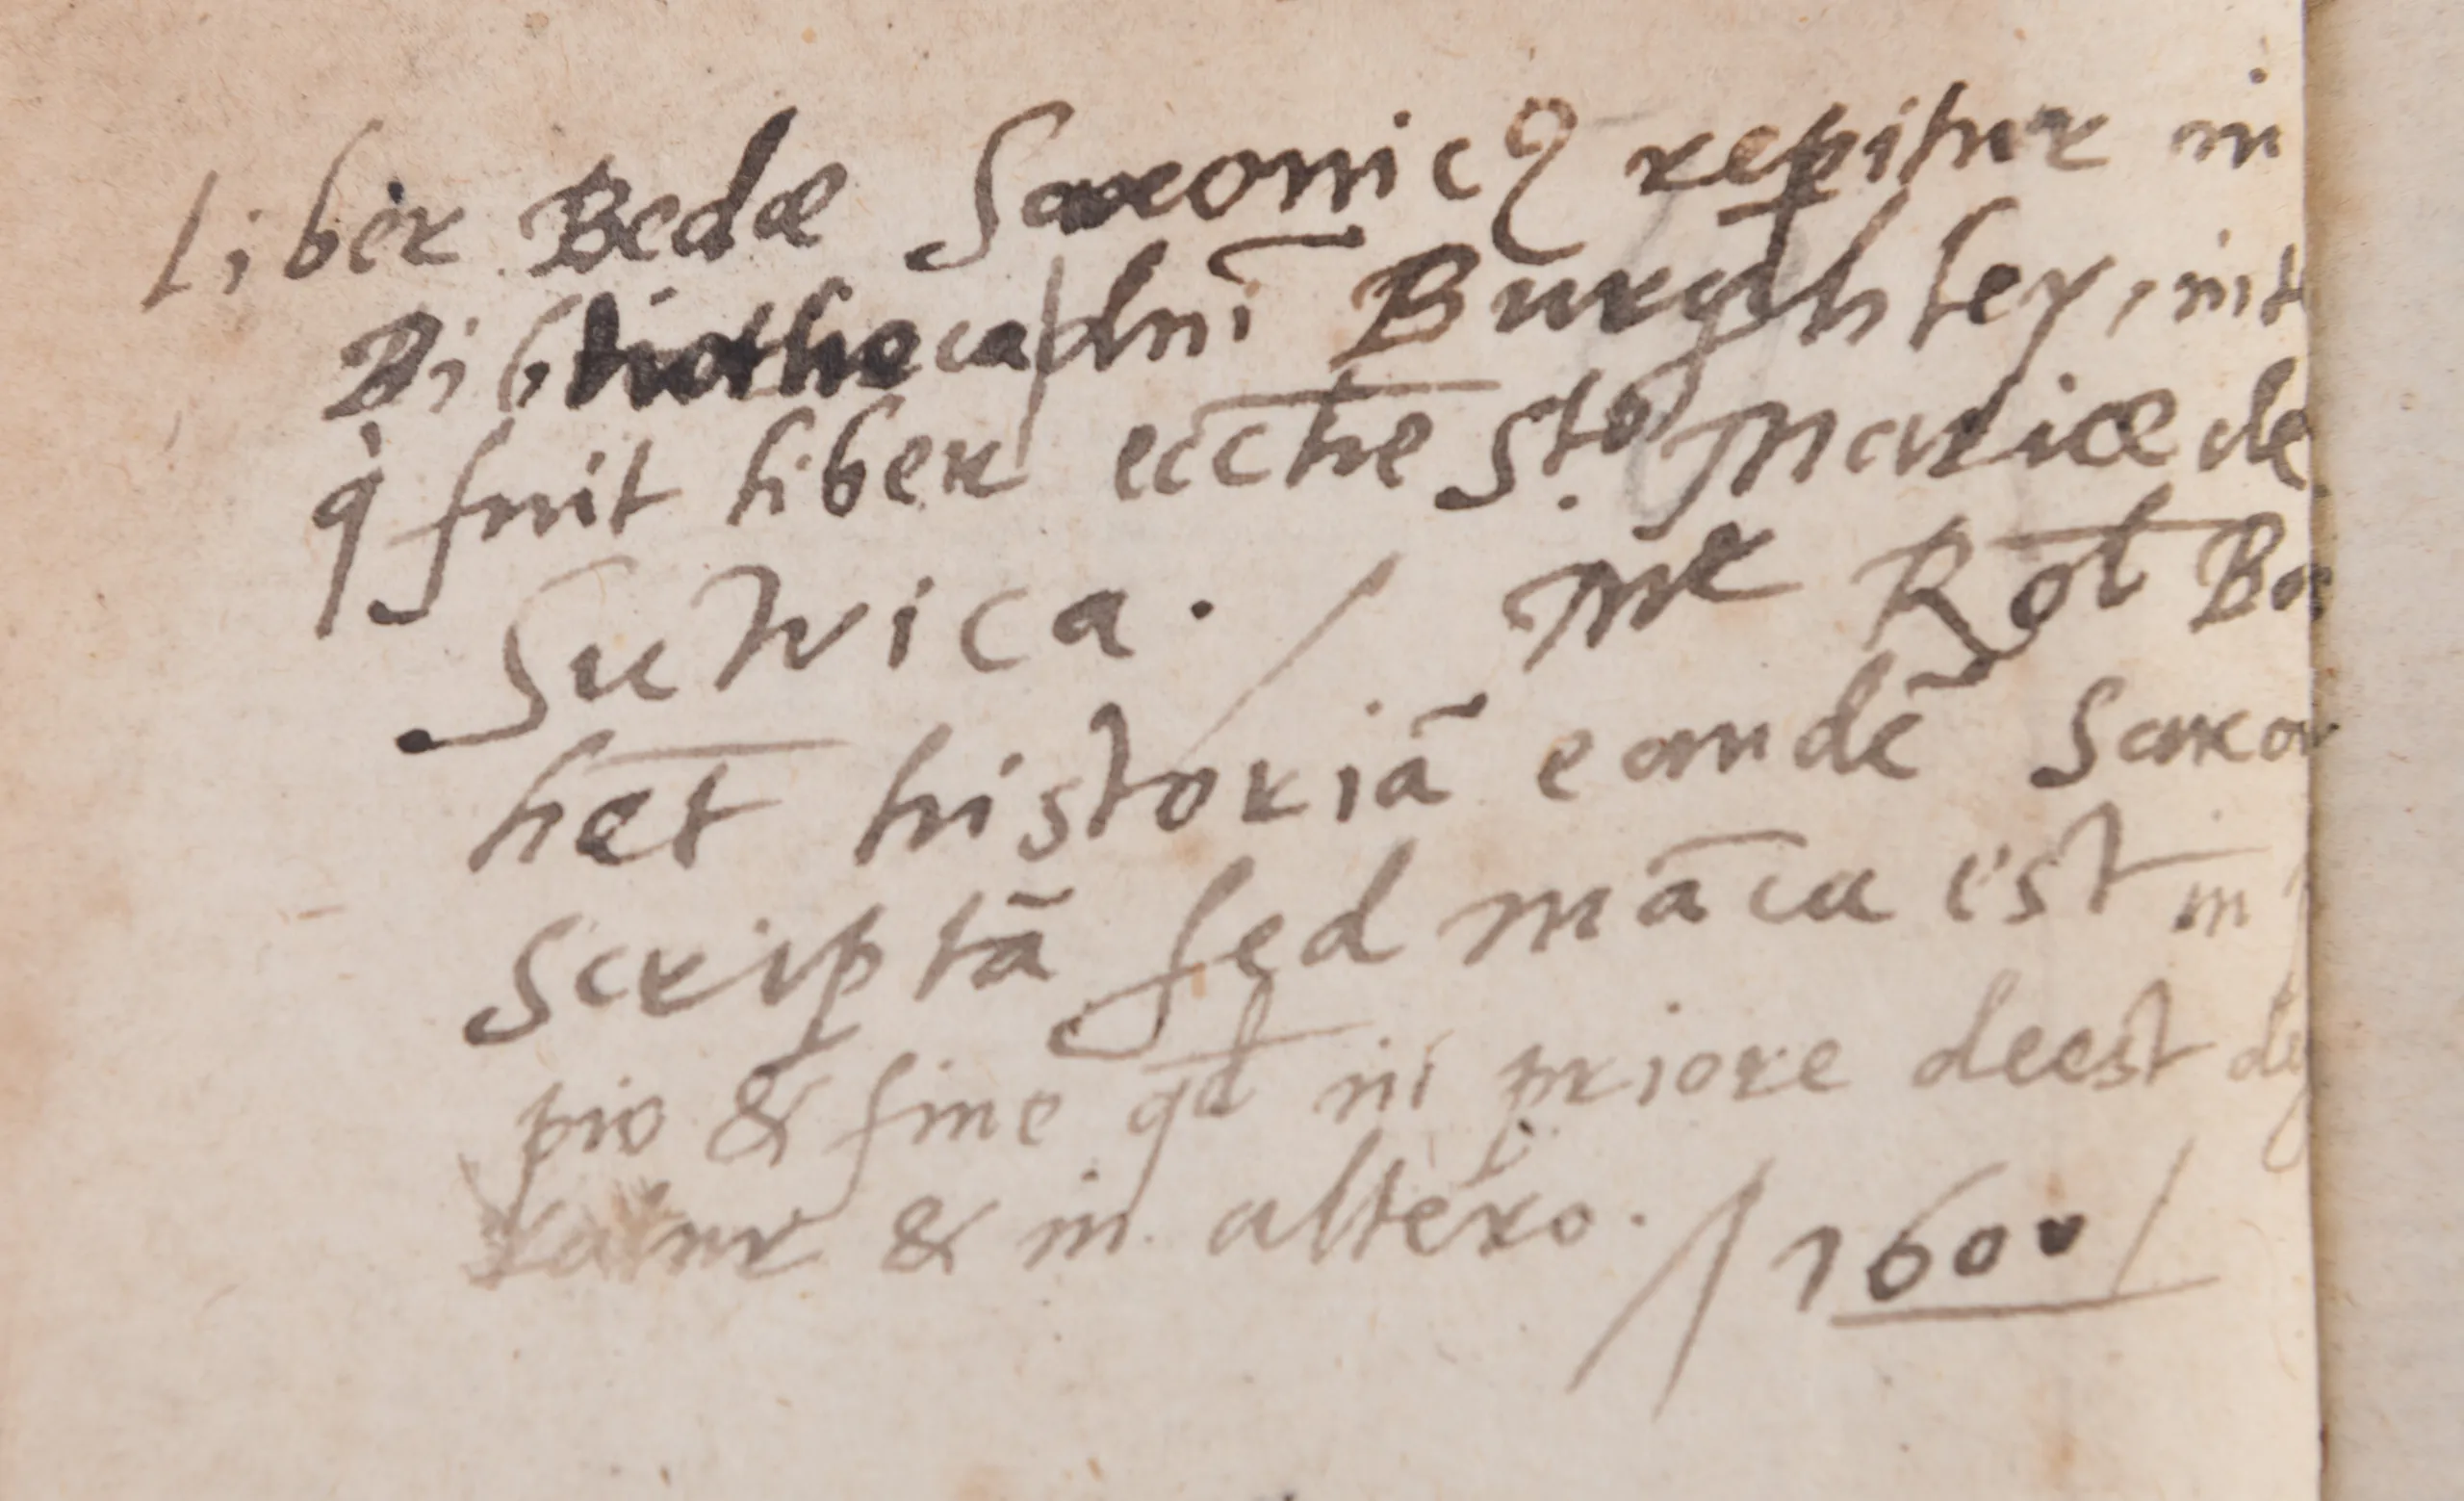 Liber Bedæ Saxonicꝰ rep̱itur in
Bibliotheca dñi Burghley, int
q̇ fuit liber eccłie Sto. Mariæ de
Suwica. / Mr Rob̄t
hēt historiā eandē Saxo
scriptā sed māca est in
pio & fine qd̄ in priore deest
& in altero. // 1600 /